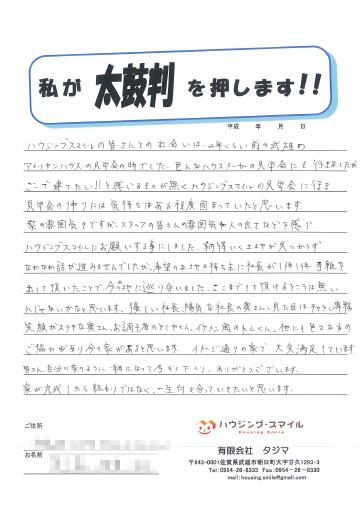 私が 太鼓判 を押します!!
平成　年　月　日
ハウジングスマイルの皆さんとの出会いは、2年くらい前の武雄の
アメリカンハウスの見学会の時でした。色んなハウスメーカーの見学会にも行きましたが
ここで建てたい!!と感じるものが無くハウジングスマイルの見学会に行き
見学会の帰りには気持ちはある程度固まっていたと思います。
家の雰囲気もですが、スタッフの皆さんの雰囲気や人の良さなどを感じ
ハウジングスマイルにお願いする事にしました。期待いく土地が見つからず
なかなか話が進みませんでしたが、希望の土地の持ち主に社長が1件1件手紙を
出して頂いたことで、今の土地に巡り合いました。ここまでして頂けるところは無い
んじゃないかなと思います。優しい社長、陽気な社長の奥さん、見た目はチャラい専務
笑顔がステキな奥さん、お調子者のとしやくん、イケメン風のれんくん、他にも色々な方の
ご協力が有り今の家が有ると思います。イメージ通りの家で大変満足しています
皆さん自分の家のように一緒になって考えて下さり、ありがとうございます。
家が完成したら終わりではなく、一生付き合っていきたいと思います。
ご住所
お名前
ハウジング・スマイル
Housing Smile
有限会社　タジマ
〒843-0001佐賀県武雄市朝日町大字甘久1293-3
Tel:0954-26-8333　Fax:0954-26-8330
mail:housing.smile@gmail.com